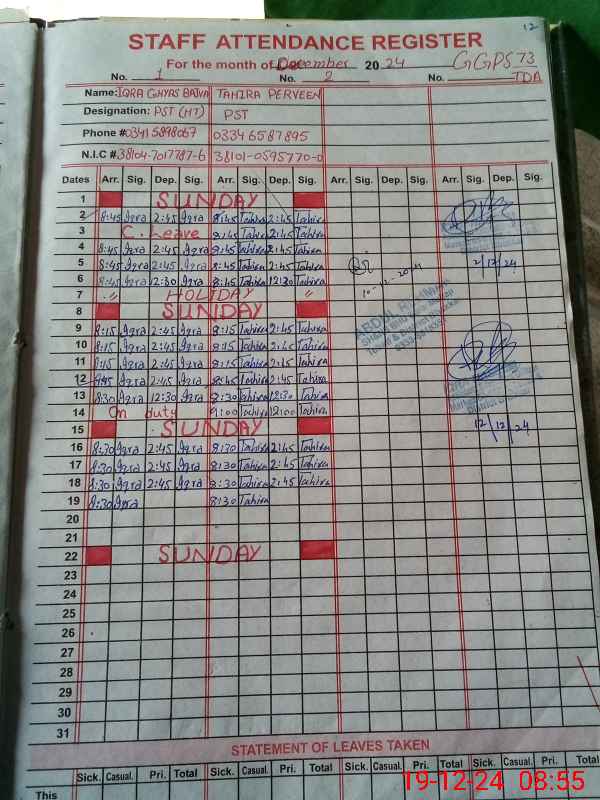 12
STAFF ATTENDANCE REGISTER
For the month of December 2024 GGPS 73
No. 1 No. 2 No. TDA
Name: IQRA GHYAS BAJWA TAHIRA PERVEEN
Designation: PST (HT) PST
Phone # 03415898067 03346587895
N.I.C #. 38104-7017787-6 38101-0595770-0
Dates Arr. Sig. Dep. Sig. Arr. Sig. Dep. Sig. Arr. Sig. Dep. Sig. Arr. Sig. Dep. Sig.
1 SUNDAY
2 8:45 Iqra 2:45 Iqra 8:45 Tahira 2:45 Tahira
3 C. Leave 8:45 Tahira 2:45 Tahira
4 8:45 Iqra 2:45 Iqra 8:45 Tahira 2:45 Tahira
5 8:45 Iqra 2:45 Iqra 8:45 Tahira 2:45 Tahira 2/12/24
6 8:45 Iqra 12:30 Iqra 8:45 Tahira 12:30 Tahira 10-12-2024
7 〃 HOLIDAY 〃
8 SUNDAY
9 8:15 Iqra 2:45 Iqra 8:15 Tahira 2:45 Tahira
10 8:15 Iqra 2:45 Iqra 8:15 Tahira 2:45 Tahira
11 8:15 Iqra 2:45 Iqra 8:15 Tahira 2:45 Tahira
12 8:45 Iqra 2:45 Iqra 8:45 Tahira 2:45 Tahira
13 8:30 Iqra 12:30 Iqra 8:30 Tahira 12:30 Tahira
14 On duty 9:00 Tahira 12:00 Tahira
15 SUNDAY 12/12/24
16 8:30 Iqra 2:45 Iqra 8:30 Tahira 2:45 Tahira
17 8:30 Iqra 2:45 Iqra 8:30 Tahira 2:45 Tahira
18 8:30 Iqra 2:45 Iqra 8:30 Tahira 2:45 Tahira
19 8:30 Iqra 8:30 Tahira
20
21
22 SUNDAY
23
24
25
26
27
28
29
30
31
STATEMENT OF LEAVES TAKEN
Sick. Casual. Pri. Total Sick. Casual. Pri. Total Sick. Casual. Pri. Total Sick. Casual. Pri. Total
This
19-12-24 08:55